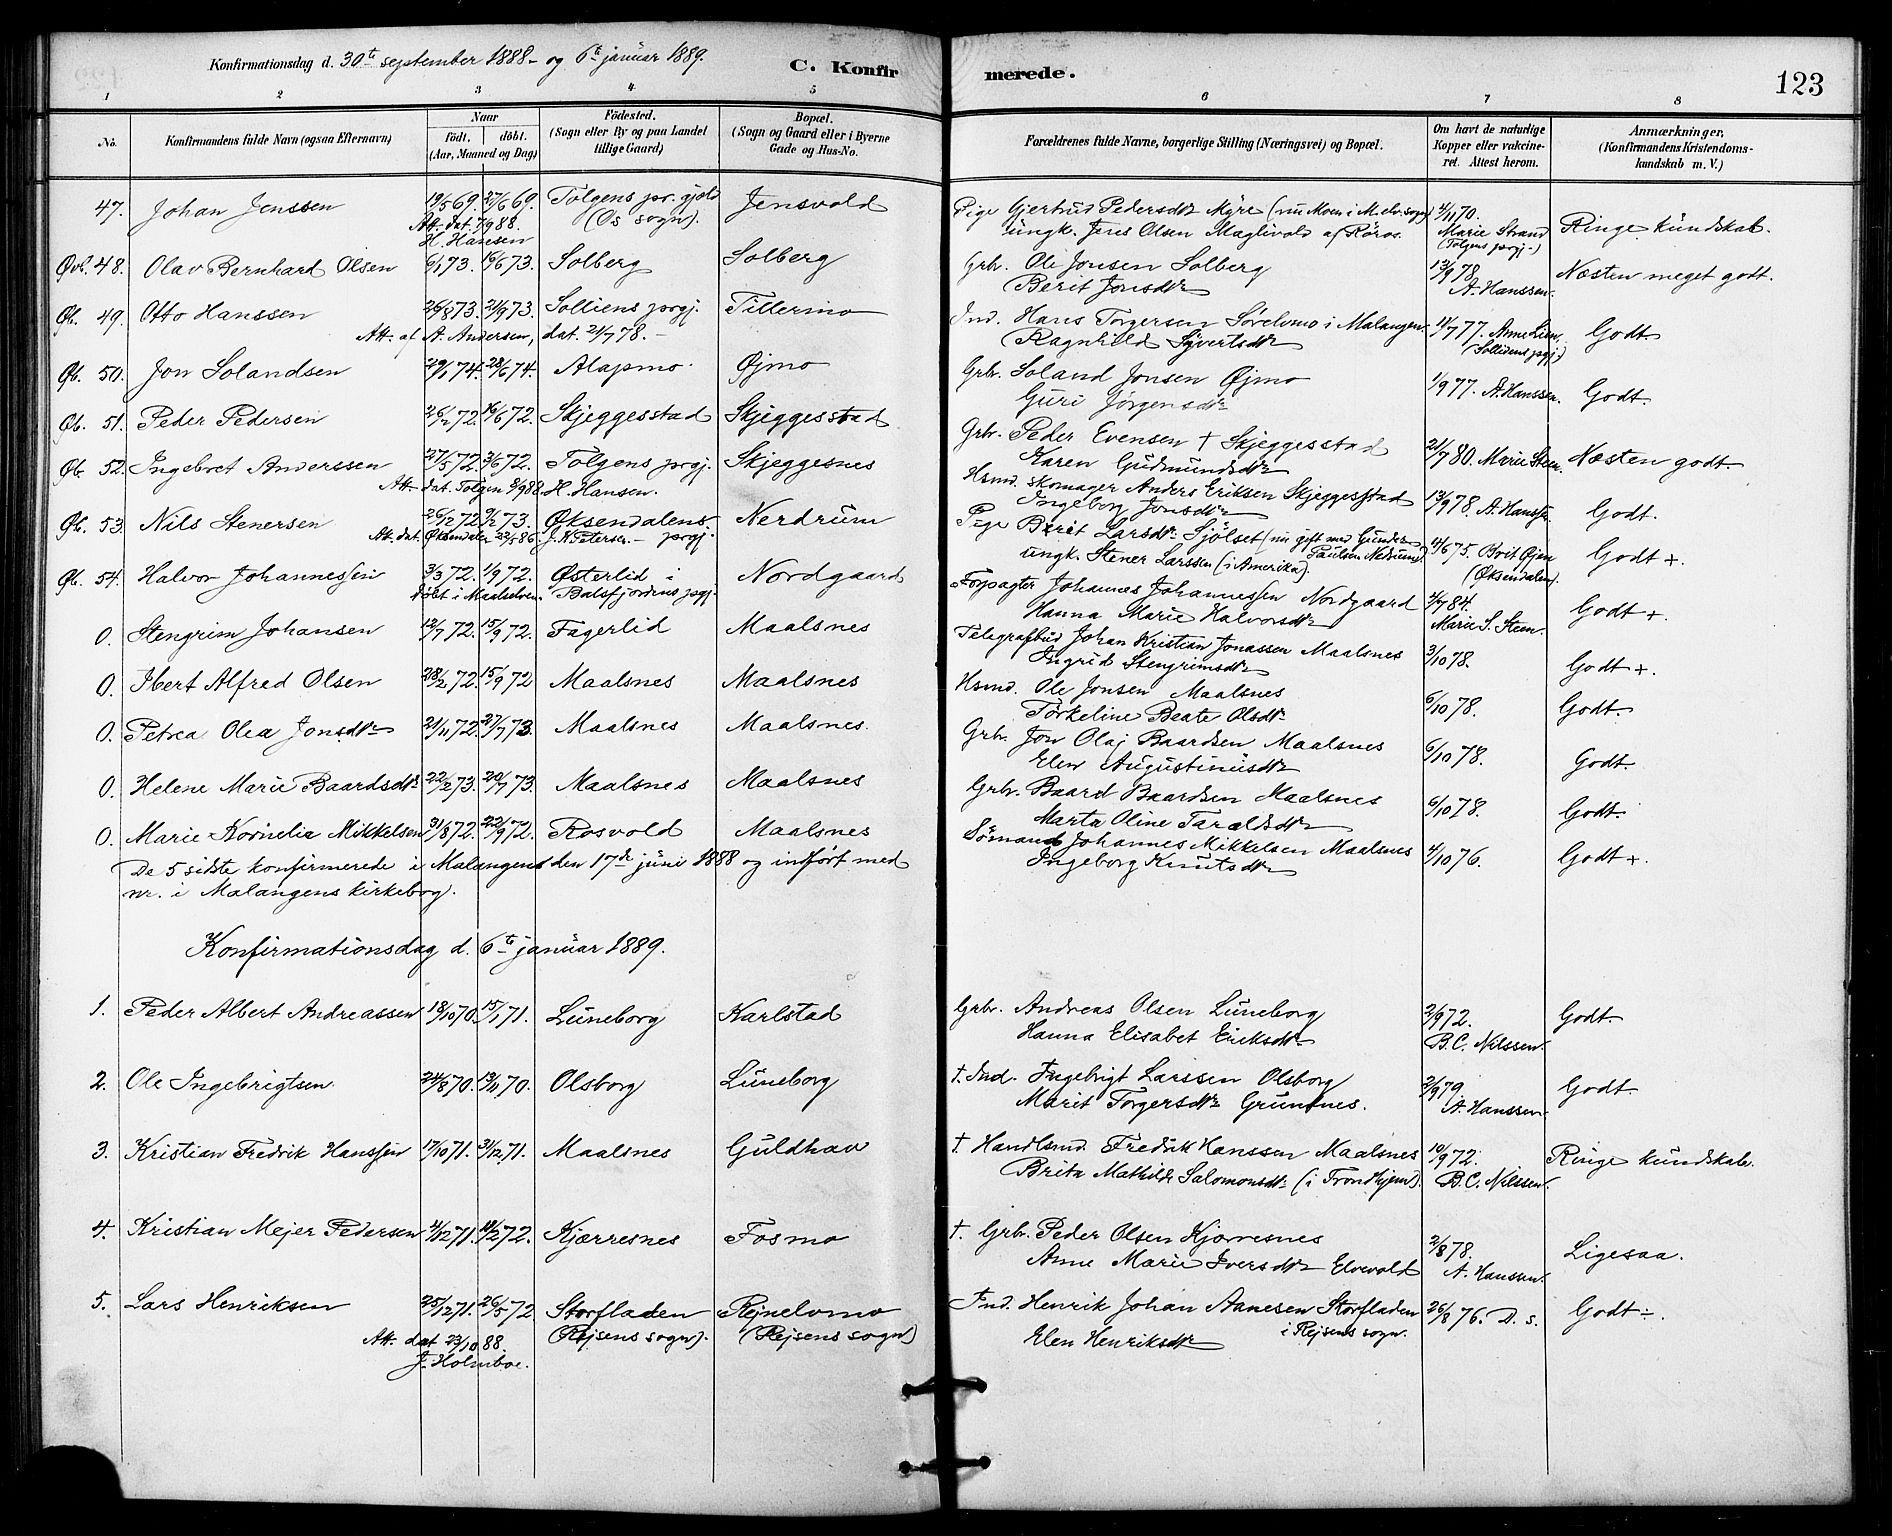 Konfirmationsdag d. 30te september 1888 - og 6te januar 1889.
C. Konfirmerede.
123
1 2 3 4 5 6 7 8
No. Konfirmandens fulde Navn (ogsaa Efternavn)
Naar
födt. döbt.
(Aar, Maaned og Dag)
Födested.
(Sogn eller By og paa Landet
tillige Gaard)
Bopæl.
(Sogn og Gaard eller i Byerne
Gade og Hus-No.
Forældrenes fulde Navne, borgerlige Stilling (Næringsvei) og Bopæl.
Om havt de naturlige
Kopper eller vakcine-
ret. Attest herom.
Anmærkninger,
(Konfirmandens Kristendoms-
kundskab m. V.)
47. Johan Jenssen 19/5 69. 27/6 69. Tolgens pr. gjeld Jensvold Pige Gjertrud Pedersdtr Myre (nu Moen i M.elv. sogn) 4/11 70. Ringe kundskab.
Att. dat. 7/9 88. (Os sogn). ungk. Jens Olsen Maglivold af Röros. Marie Strand
H. Hansen (Tolgens prgj.)
Øvb. 48. Olav Bernhard Olsen 6/1 73. 16/6 73. Solberg Solberg Grbr. Ole Jonsen Solberg 13/9 78. Næsten meget godt.
Berit Jonsdtr A. Hanssen.
Øb. 49. Otto Hanssen 26/8 73. 21/9 73. Solliens prgj. Tillermo Ind. Hans Torgersen Sörelvmo i Malangen 4/7 77. Anne Lien, Godt.
Att. af A. Andersen, dat. 21/7 78. Ragnhild Syvertsdtr (Sollidens prgj.)
Øb. 50. Jon Solandsen 29/1 74. 28/6 74. Alapmo. Øjmo Grbr. Soland Jonsen Øjmo 1/9 77. A. Hanssen. Godt.
Guri Jörgensdtr
Øb. 51. Peder Pedersen 26/2 72. 16/6 72. Skjeggesstad Skjeggesstad Grbr. Peder Evensen + Skjeggesstad 21/7 80. Marie Steen. Næsten godt.
Karen Gudmundsdtr
Øb. 52. Ingebret Anderssen 27/5 72. 3/6 72. Tolgens prgj. Skjeggesnes Hsmd. skomager Anders Eriksen Skjeggesstad 13/9 78. A. Hanssen Godt.
Att. dat. Tolgen 8/9 88. H. Hansen. Ingeborg Jonsdtr
Øb. 53. Nils Stenersen 26/12 72. 9/2 73. Øksendalens prgj. Nerdrum Pige Berit Larsdtr Sjölset (nu gift med Gunder Paulsen Nedrum) 4/6 75. Brit Øjen Godt +
Att. dat. Øksendalen 22/5 86. J. N. Petersen. ungk. Stener Larssen (i Amerika). (Øksendalen).
Øb. 54. Halvor Johannessen 3/3 72. 1/9 72. Østerlid i Nordgaard Forpagter Johannes Johannessen Nordgaard 4/7 84. Godt +.
döbt i Maalselven. Balsfjordens prgj. Hanna Marie Halvorsdtr Marie S. Steen.
0. Stengrim Johansen 12/7 72. 15/9 72. Fagerlid Maalsnes Telegrafbud Johan Kristian Jonassen Maalsnes 3/10 78. Godt +.
Ingrid Stengrimsdtr
0. Ibert Alfred Olsen 28/2 72. 15/9 72 Maalsnes Maalsnes Hsmd. Ole Jonsen Maalsnes 6/10 78. Godt.
Torkeline Beate Olsdtr
0. Petrea Olea Jonsdtr 21/11 72. 27/7 73. Maalsnes Maalsnes. Grbr. Jon Olaj Baardsen Maalsnes 6/10 78. Godt.
Elen Augustinusdtr
0. Helene Marie Baardsdtr 22/2 73. 20/7 73. Maalsnes Maalsnes Grbr. Baard Baardsen Maalsnes 6/10 78. Godt.
Marta Oline Taraldsdtr
0. Marie Kornelia Mikkelsen 31/8 72. 22/9 72. Rosvold Maalsnes Sömand Johannes Mikkelsen Maalsnes 4/10 76. Godt +.
Ingeborg Knutsdtr
De 5 sidste konfirmerede i Malangen den 17de juni 1888 og indfört med
nr. i Malangens kirkebog.
Konfirmationsdag d. 6te januar 1889.
1. Peder Albert Andreassen 18/10 70. 15/1 71. Luneborg Karlstad Grbr. Andreas Olsen Luneborg 2/9 72. Godt.
Hanna Elisabet Eriksdtr B.C. Nilssen.
2. Ole Ingebrigtsen 24/8 70. 13/11 70. Olsborg Luneborg +. Ind. Ingebrigt Larssen Olsborg 2/9 79. Godt.
Marit Torgersdtr Grundnes. A. Hanssen.
3. Kristian Fredrik Hanssen 17/10 71. 31/12 71. Maalsnes Guldhav + Handlsmd. Fredrik Hanssen Maalsnes 10/9 72. Ringe kundskab.
Brita Mathilde Salomonsdtr (i Trondhjem). B.C. Nilssen.
4. Kristian Mejer Pedersen 4/12 71. 18/2 72. Kjærresnes Fosmo +. Grbr. Peder Olsen Kjærresnes 2/8 78. Ligesaa.
Anne Marie Iversdtr Elvevold A. Hanssen.
5. Lars Henriksen 25/12 71. 26/5 72 Storfladen Rejnelvmo Ind. Henrik Johan Aanesen Storfladen 26/8 76. D. s. Godt ÷.
Att. dat 23/10 88. (Rejsens sogn). (Rejsens sogn) Elen Henriksdtr i Rejsens sogn.
J. Holmboe.